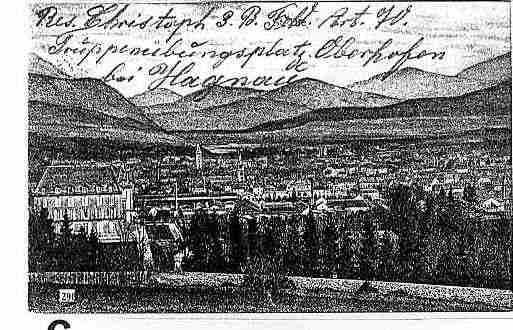 Res. Christoph 3. B. Feld. Art. N.
Truppenübungsplatz Oberhofen
bei Hagenau
201